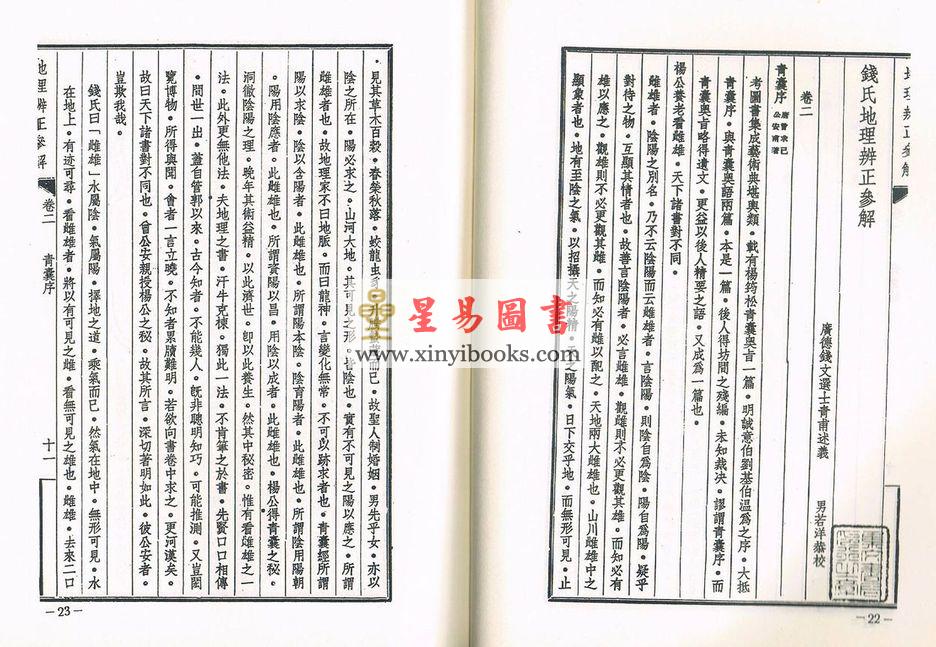 地理辨正參解
錢氏地理辨正參解
廣德錢文選士青甫述義　男若洋恭校
卷二
青囊序　唐曾求己公安甫著
考圖書集成藝術典堪輿類。載有楊筠松青囊奧旨一篇。明誠意伯劉基伯溫爲之序。大抵
青囊序。與青囊奧語兩篇。本是一篇。後人得坊間之殘編。未知裁決。謬謂青囊序。而
青囊奧旨略得遺文。更益以後人精要之語。又成爲一篇也。
楊公養老看雌雄。天下諸書對不同。
雌雄者。陰陽之別名。乃不云陰陽而云雌雄者。言陰陽。則陰自爲陰。陽自爲陽。疑乎
對待之物。互顯其情者也。故善言陰陽者。必言雌雄。觀雌則不必更觀其雄。而知必有
雄以應之。觀雄則不必更觀其雌。而知必有雌以配之。天地兩大雌雄也。山川雌雄中之
顯象者也。地有至陰之氣。以招攝天之陽精。天之陽氣。日下交乎地。而無形可見。止
—22—
星易圖書
www.xinyibooks.com
見其草木百穀。春榮秋落。蛟龍虫豸。而已。故聖人制婚姻。男先乎女。亦以
陰之所在。陽必求之。山河大地。其可見之形。皆陰也。實有不可見之陽以應之。所謂
雌雄者也。故地理家不曰地脈。而曰龍神。言變化無常。不可以跡求者也。青囊經所謂
陽以求陰。陰以含陽者。此雌雄也。所謂陽本陰。陰育陽者。此雌雄也。所謂陰用陽朝
。陽用陰應者。此雌雄也。所謂資陽以昌。用陰以成者。此雌雄也。楊公得青囊之秘。
洞徹陰陽之理。晚年其術益精。以此濟世。卽以此養生。然其中秘密。惟有看雌雄之一
法。此外更無他法。夫地理之書。汗牛充棟。獨此一法。不肯筆之於書。先賢口口相傳
。間世一出。蓋自管郭以來。古今知者。不能幾人。旣非聰明知巧。可能推測。又豈閎
覽博物。所得與聞。會者一言立曉。不知者累牘難明。若欲向書卷中求之。更河漢矣。
故曰天下諸書對不同也。曾公安親授楊公之秘。故其所言。深切著明如此。彼公安者。
豈欺我哉。
錢氏曰「雌雄」水屬陰。氣屬陽。擇地之道。乘氣而已。然氣在地中。無形可見。水
在地上。有迹可尋。看雌雄者。將以有可見之雌。看無可見之雄也。雌雄。去來二口
地理辨正參解　卷二　青囊序　十一
—23—